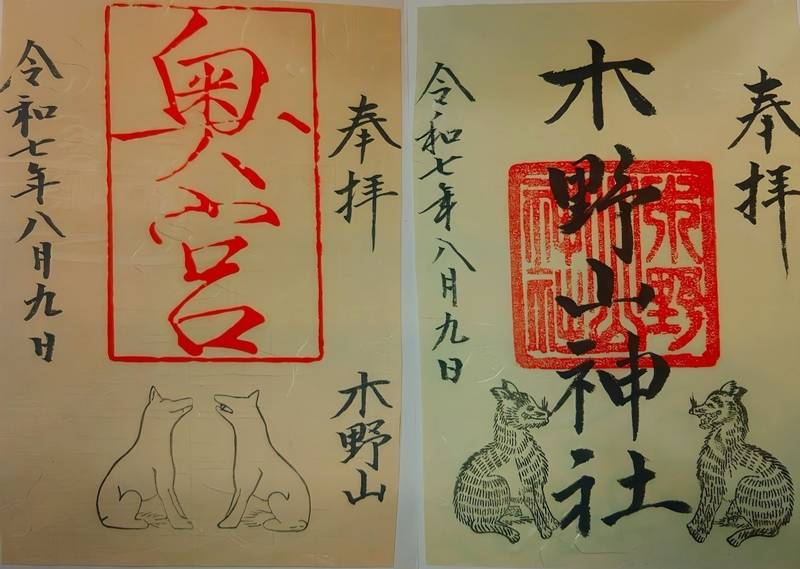 奉拝
奥宮
木野山
令和七年八月九日
奉拝
木野山神社
木野山神社
令和七年八月九日